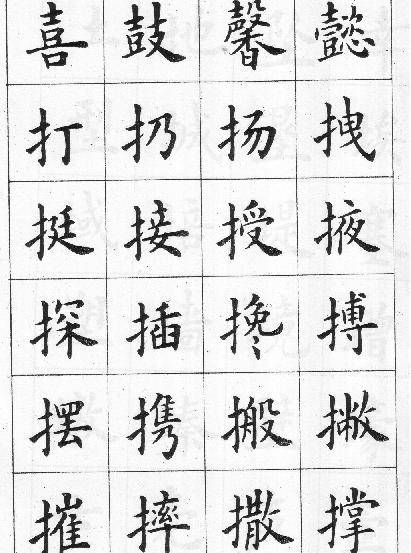 喜鼓馨懿
打扔扬拽
挺接授掖
探插搀搏
摆携搬撇
摧摔撒撑